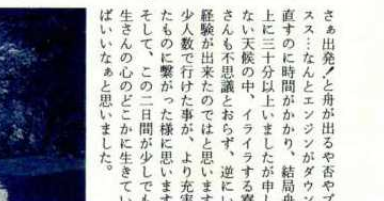 さぁ出発!と舟が出るや否やプ
スス…なんとエンジンがダウン
直すのに時間がかかり、結局舟
上に三十分以上いましたが申し
ない天候の中、イライラする寮
さんも不思議とおらず、逆にい
経験が出来たのではと思います
少人数で行けた事が、より充実
たものに繋がった様に思います
そして、この二日間が少しでも
生さんの心のどこかに生きてい
ばいいなぁと思いました。